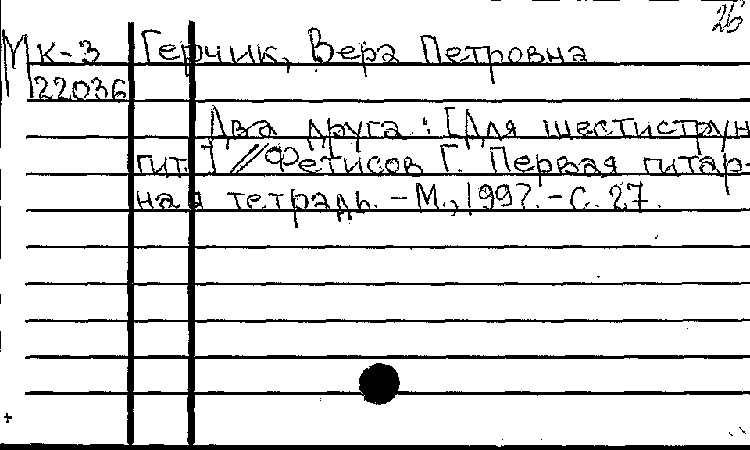 26
М к-3 Герчик, Вера Петровна
22036
Два друга : [Для шестиструн
гит.] // Фетисов Г. Первая гитар-
ная тетрадь. - М., 1997. - С. 27.